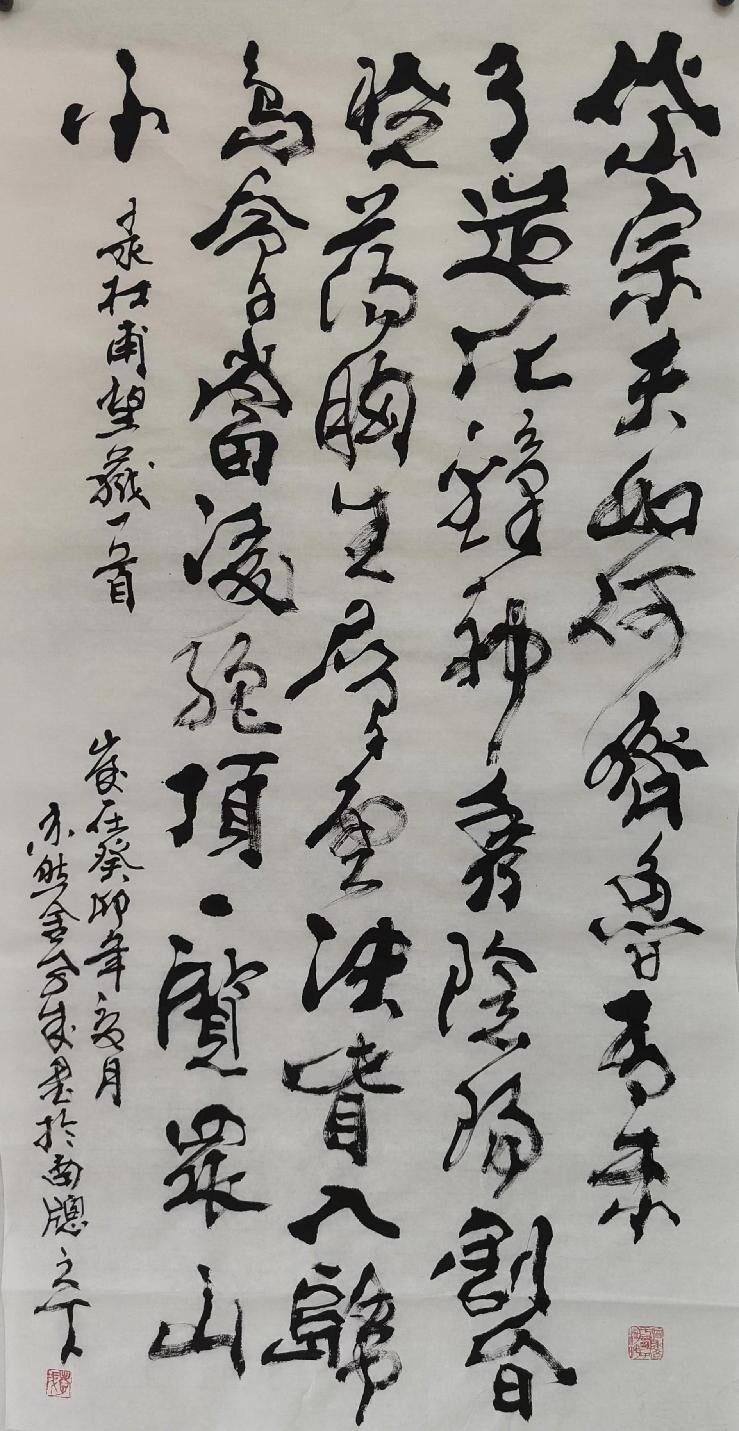 岱宗夫如何齊魯青未
了造化鍾神秀陰陽割昏
曉蕩胸生層雲決眥入歸
鳥會當淩絕頂一覽眾山
小
录杜甫望嶽一首
歲在癸卯年亥月
亦然成書於南牕之下